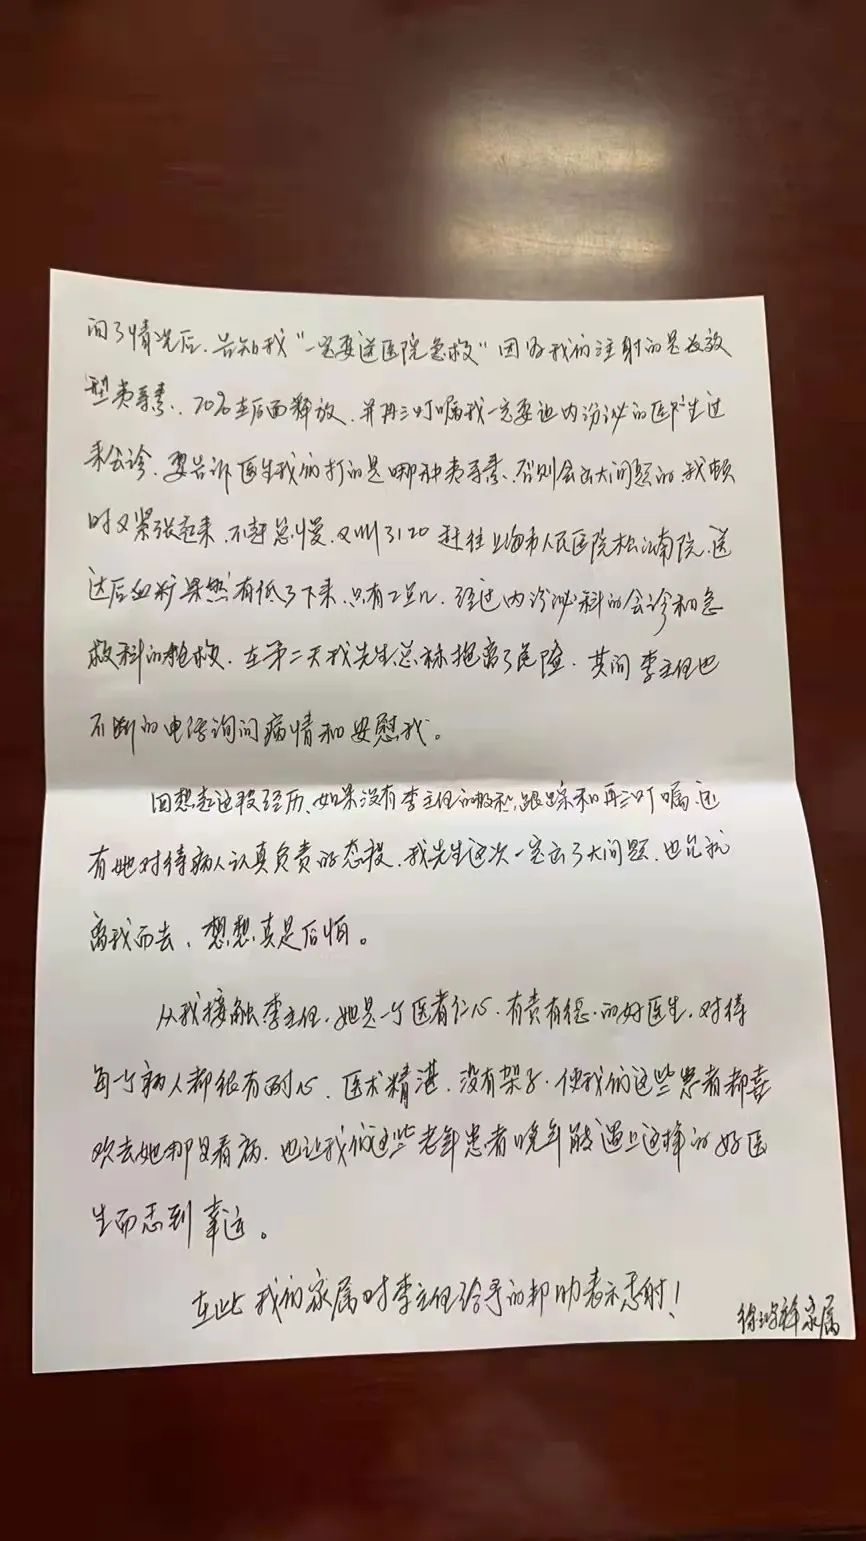 问了情况后、告知我“一定要送医院急救”因为我们注射的是长效
型胰岛素、70%在后面释放、并再三叮嘱我一定要让内分泌的医生过
来会诊、要告诉医生我们打的是哪种胰岛素、否则会出大问题的、我顿
时又紧张起来、不敢怠慢、又叫了120赶往上海市人民医院松江南院、送
达后血糖果然有低了下来、只有2点几、经过内分泌科的会诊和急
救科的抢救、在第二天我先生总算抱离了危险、其间李主任也
不断的电话询问病情和安慰我。
回想起这段经历、如果没有李主任的跟踪和再三叮嘱、还
有她对待病人认真负责的态度、我先生这次一定出了大问题、也许就
离我而去、想想真是后怕。
从我接触李主任、她是一个医者仁心、有责有德、的好医生、对待
每个病人都很有耐心、医术精湛、没有架子、使我们这些患者都喜
欢去她那里看病、也让我们这些老年患者晚年能遇上这样的好医
生而感到幸运。
在此我们家属对李主任给予的帮助表示感谢！
徐 祥家属